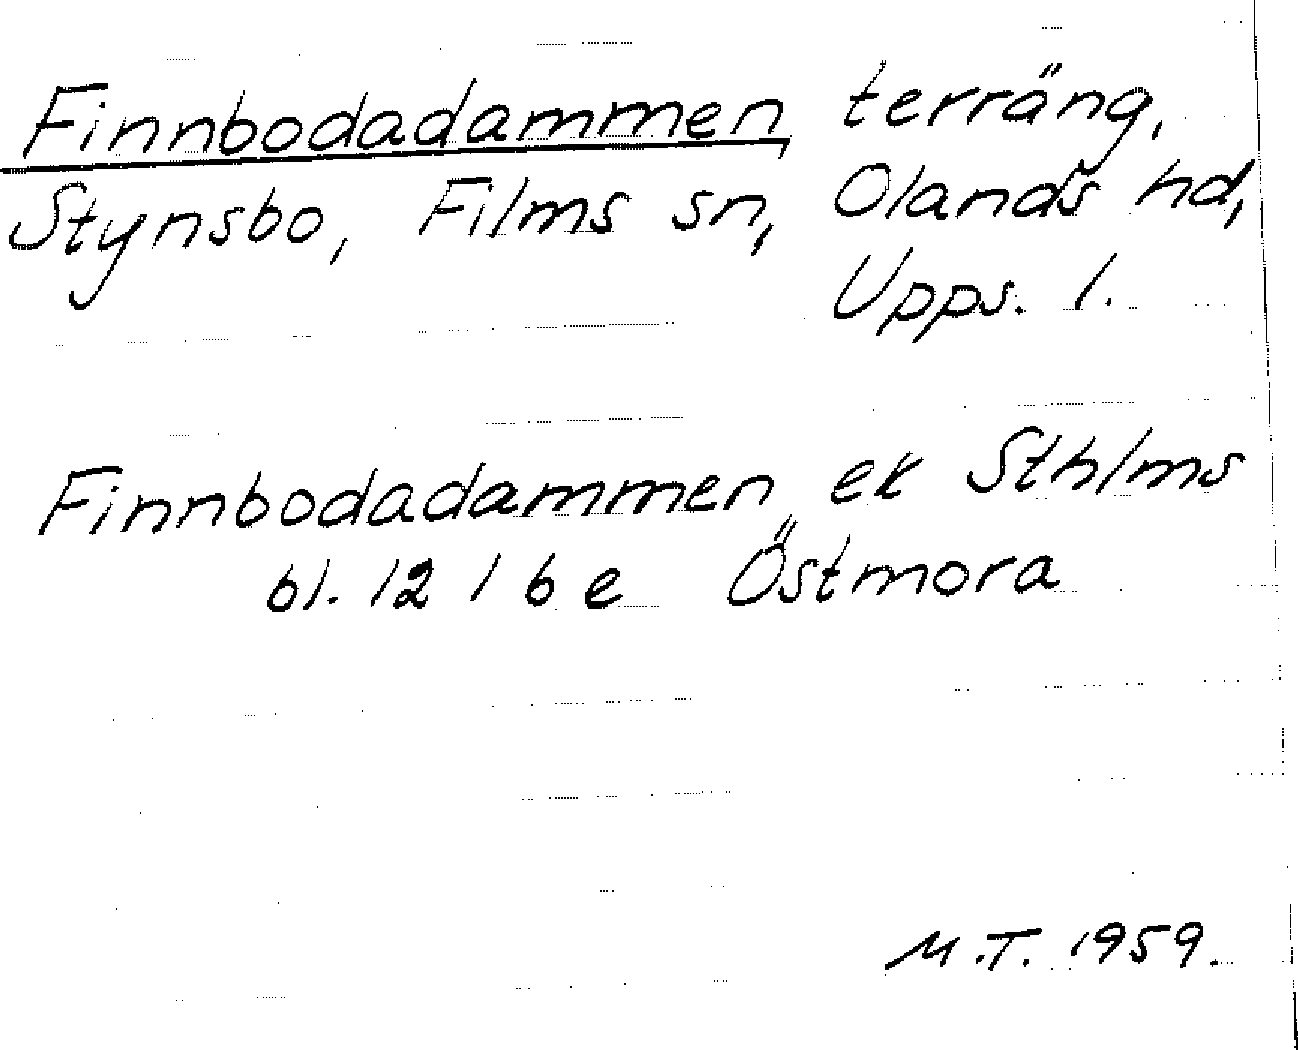 Finnbodadammen, terräng,
Stynsbo, Films sn, Olands hd,
Upps. l.
Finnbodadammen, ek Sthlms
bl. 12 I 6 e Östmora
M.T. 1959.